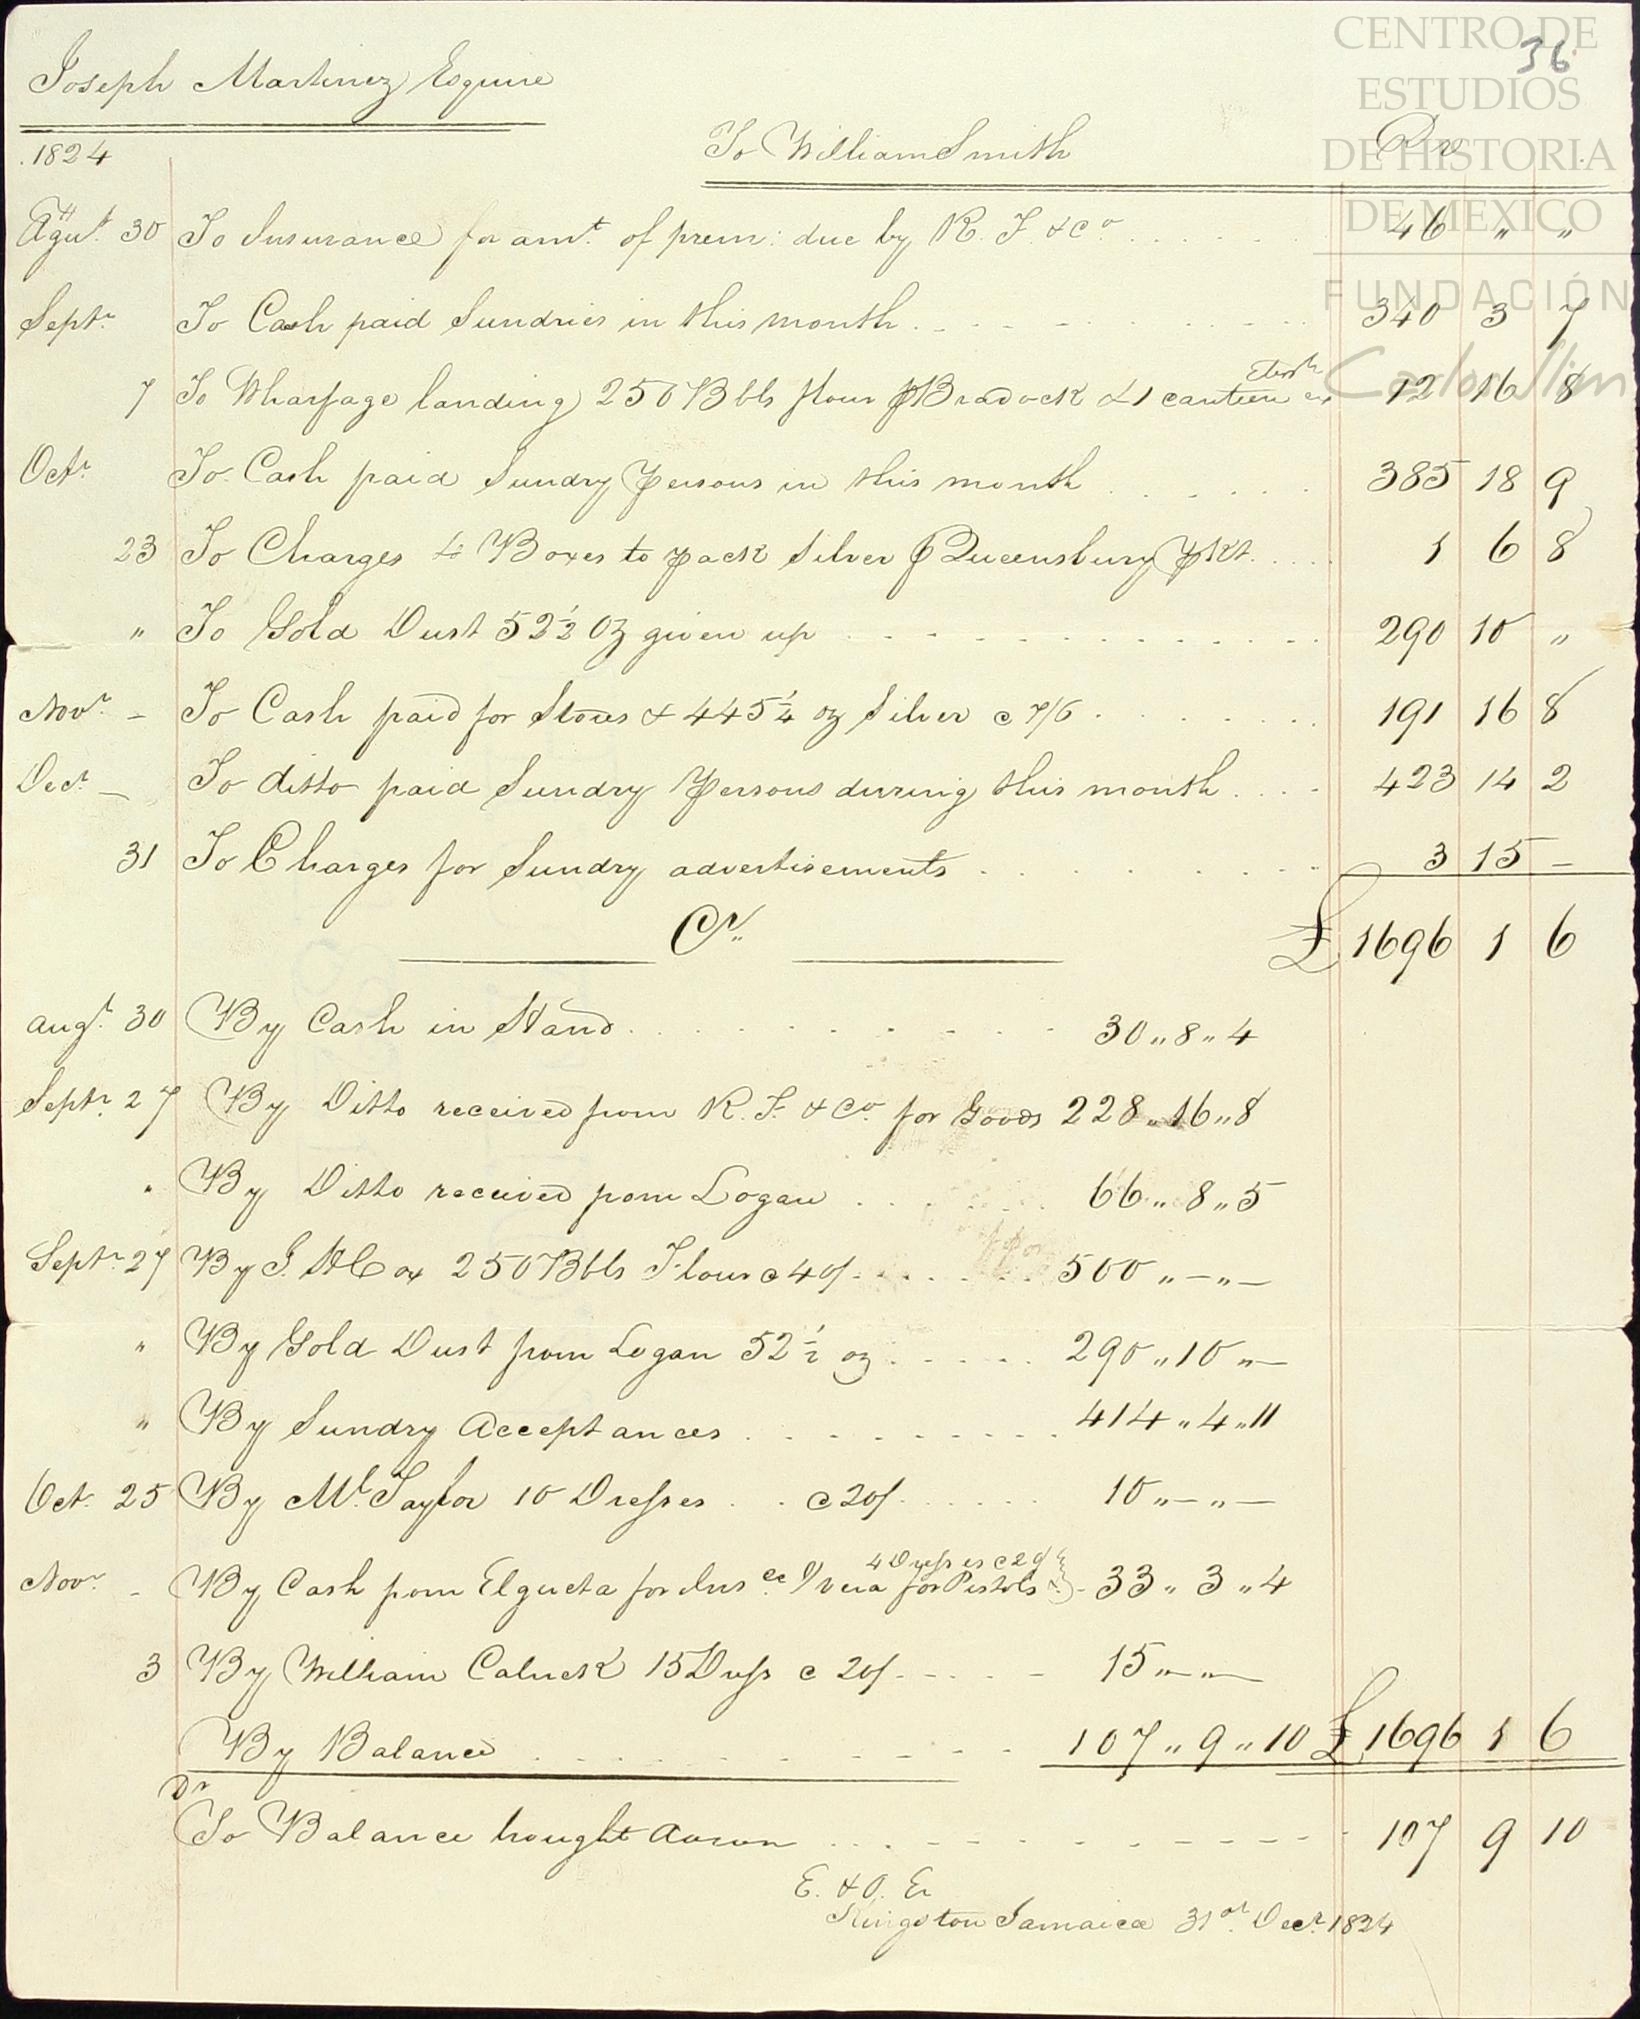 CENTRO DE
ESTUDIOS
DE HISTORIA
DE MEXICO
FUNDACIÓN
Carlos Slim
36
Joseph Martinez Esquire
To William Smith Dr
1824
Agut. 30 To Insurance for amt. of prem: due by R. F. & Co. 46 " "
Septr. To Cash paid Sundries in this month 340 3 7
7 To Wharfage landing 250 Bbls flour p Bradock & 1 canteen 12 16 8
Octr. To Cash paid Sundry Persons in this month 385 18 9
23 To Charges 4 Boxes to pack Silver p Queensbury Pkt. 1 6 8
" To Gold Dust 52 1/2 Oz given up 290 10 "
Novr. - To Cash paid for Stores & 445 1/4 oz Silver @ 7/6 191 16 8
Decr. - To ditto paid Sundry Persons during this month 423 14 2
31 To Charges for Sundry advertisements 3 15 -
£ 1696 1 6
Cr.
augt. 30 By Cash in Hand 30 " 8 " 4
Septr. 27 By Ditto received from R. F. & Co. for Goods 228 " 16 " 8
" By Ditto received from Logan 66 " 8 " 5
Septr. 27 By J. H Cox 250 Bbls Flour @ 40/ 500 " - " -
" By Gold Dust from Logan 52 1/2 oz 290 " 10 " -
" By Sundry Acceptances 414 " 4 " 11
Oct. 25 By Mr. Taylor 10 Dresses @ 20/ 10 " - " -
4 Dresses @ 20/
Novr. - By Cash from Elgueta for Insce. for Pistols & 33 " 3 " 4
3 By William 15 Dress @ 20/ 15 " - " -
By Balance 107 " 9 " 10 £ 1696 1 6
Dr
To Balance brought down 107 9 10
E. & O. Er
Kingston Jamaica 31st. Decr. 1824